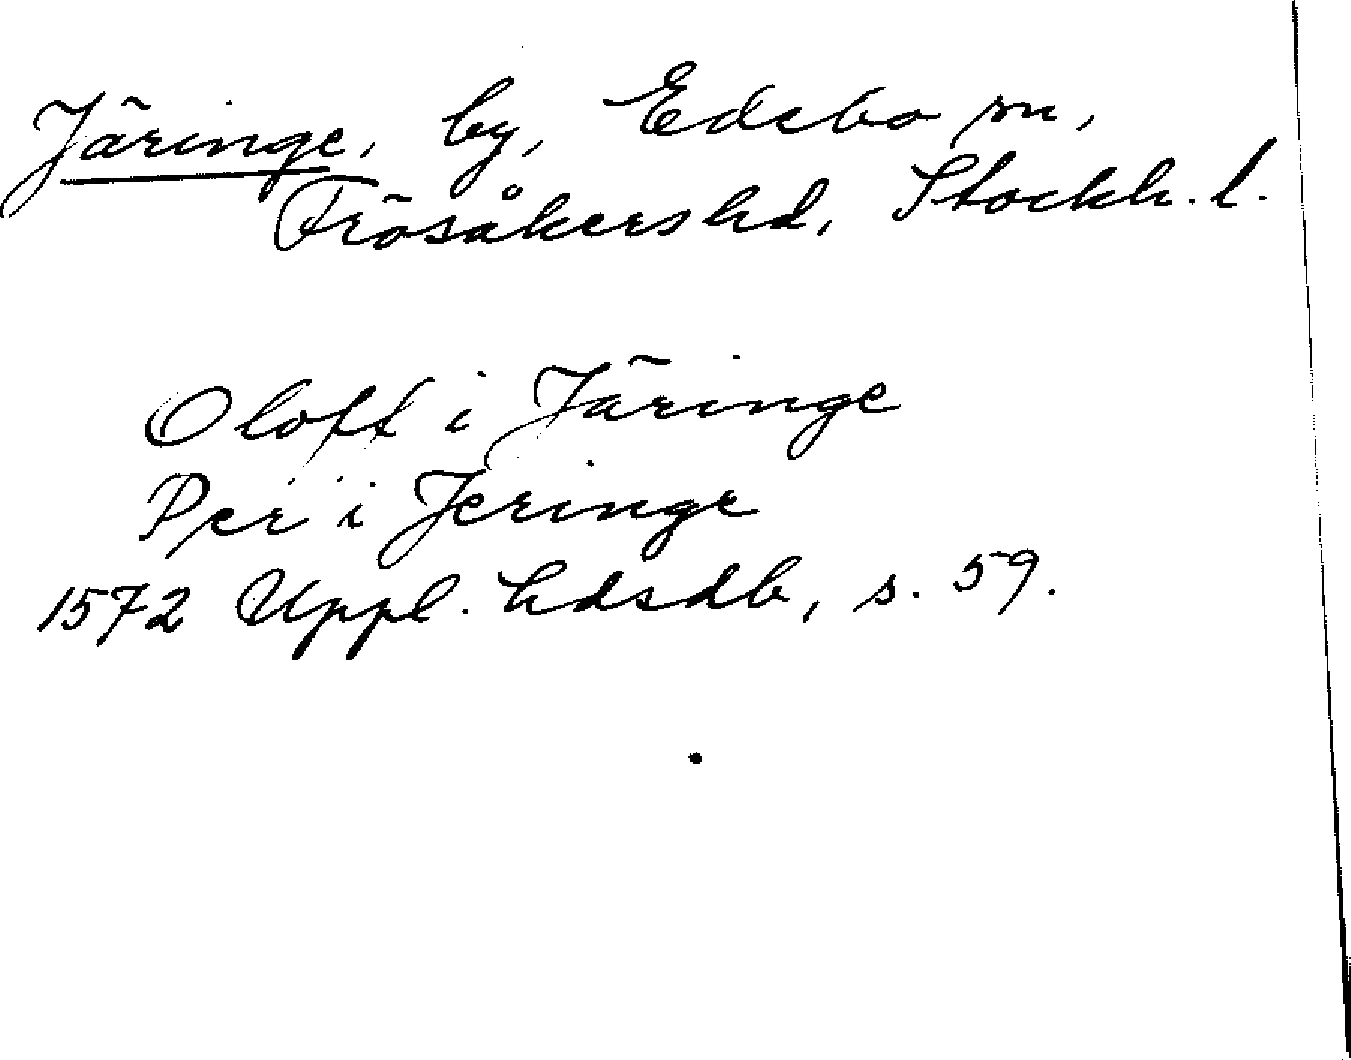 Järinge, by, Edebo sn,
Frösåkers hd, Stockh. l.
Oloff i Järinge
Per i Jeringe
1572 Uppl. hdsdb, s. 59.